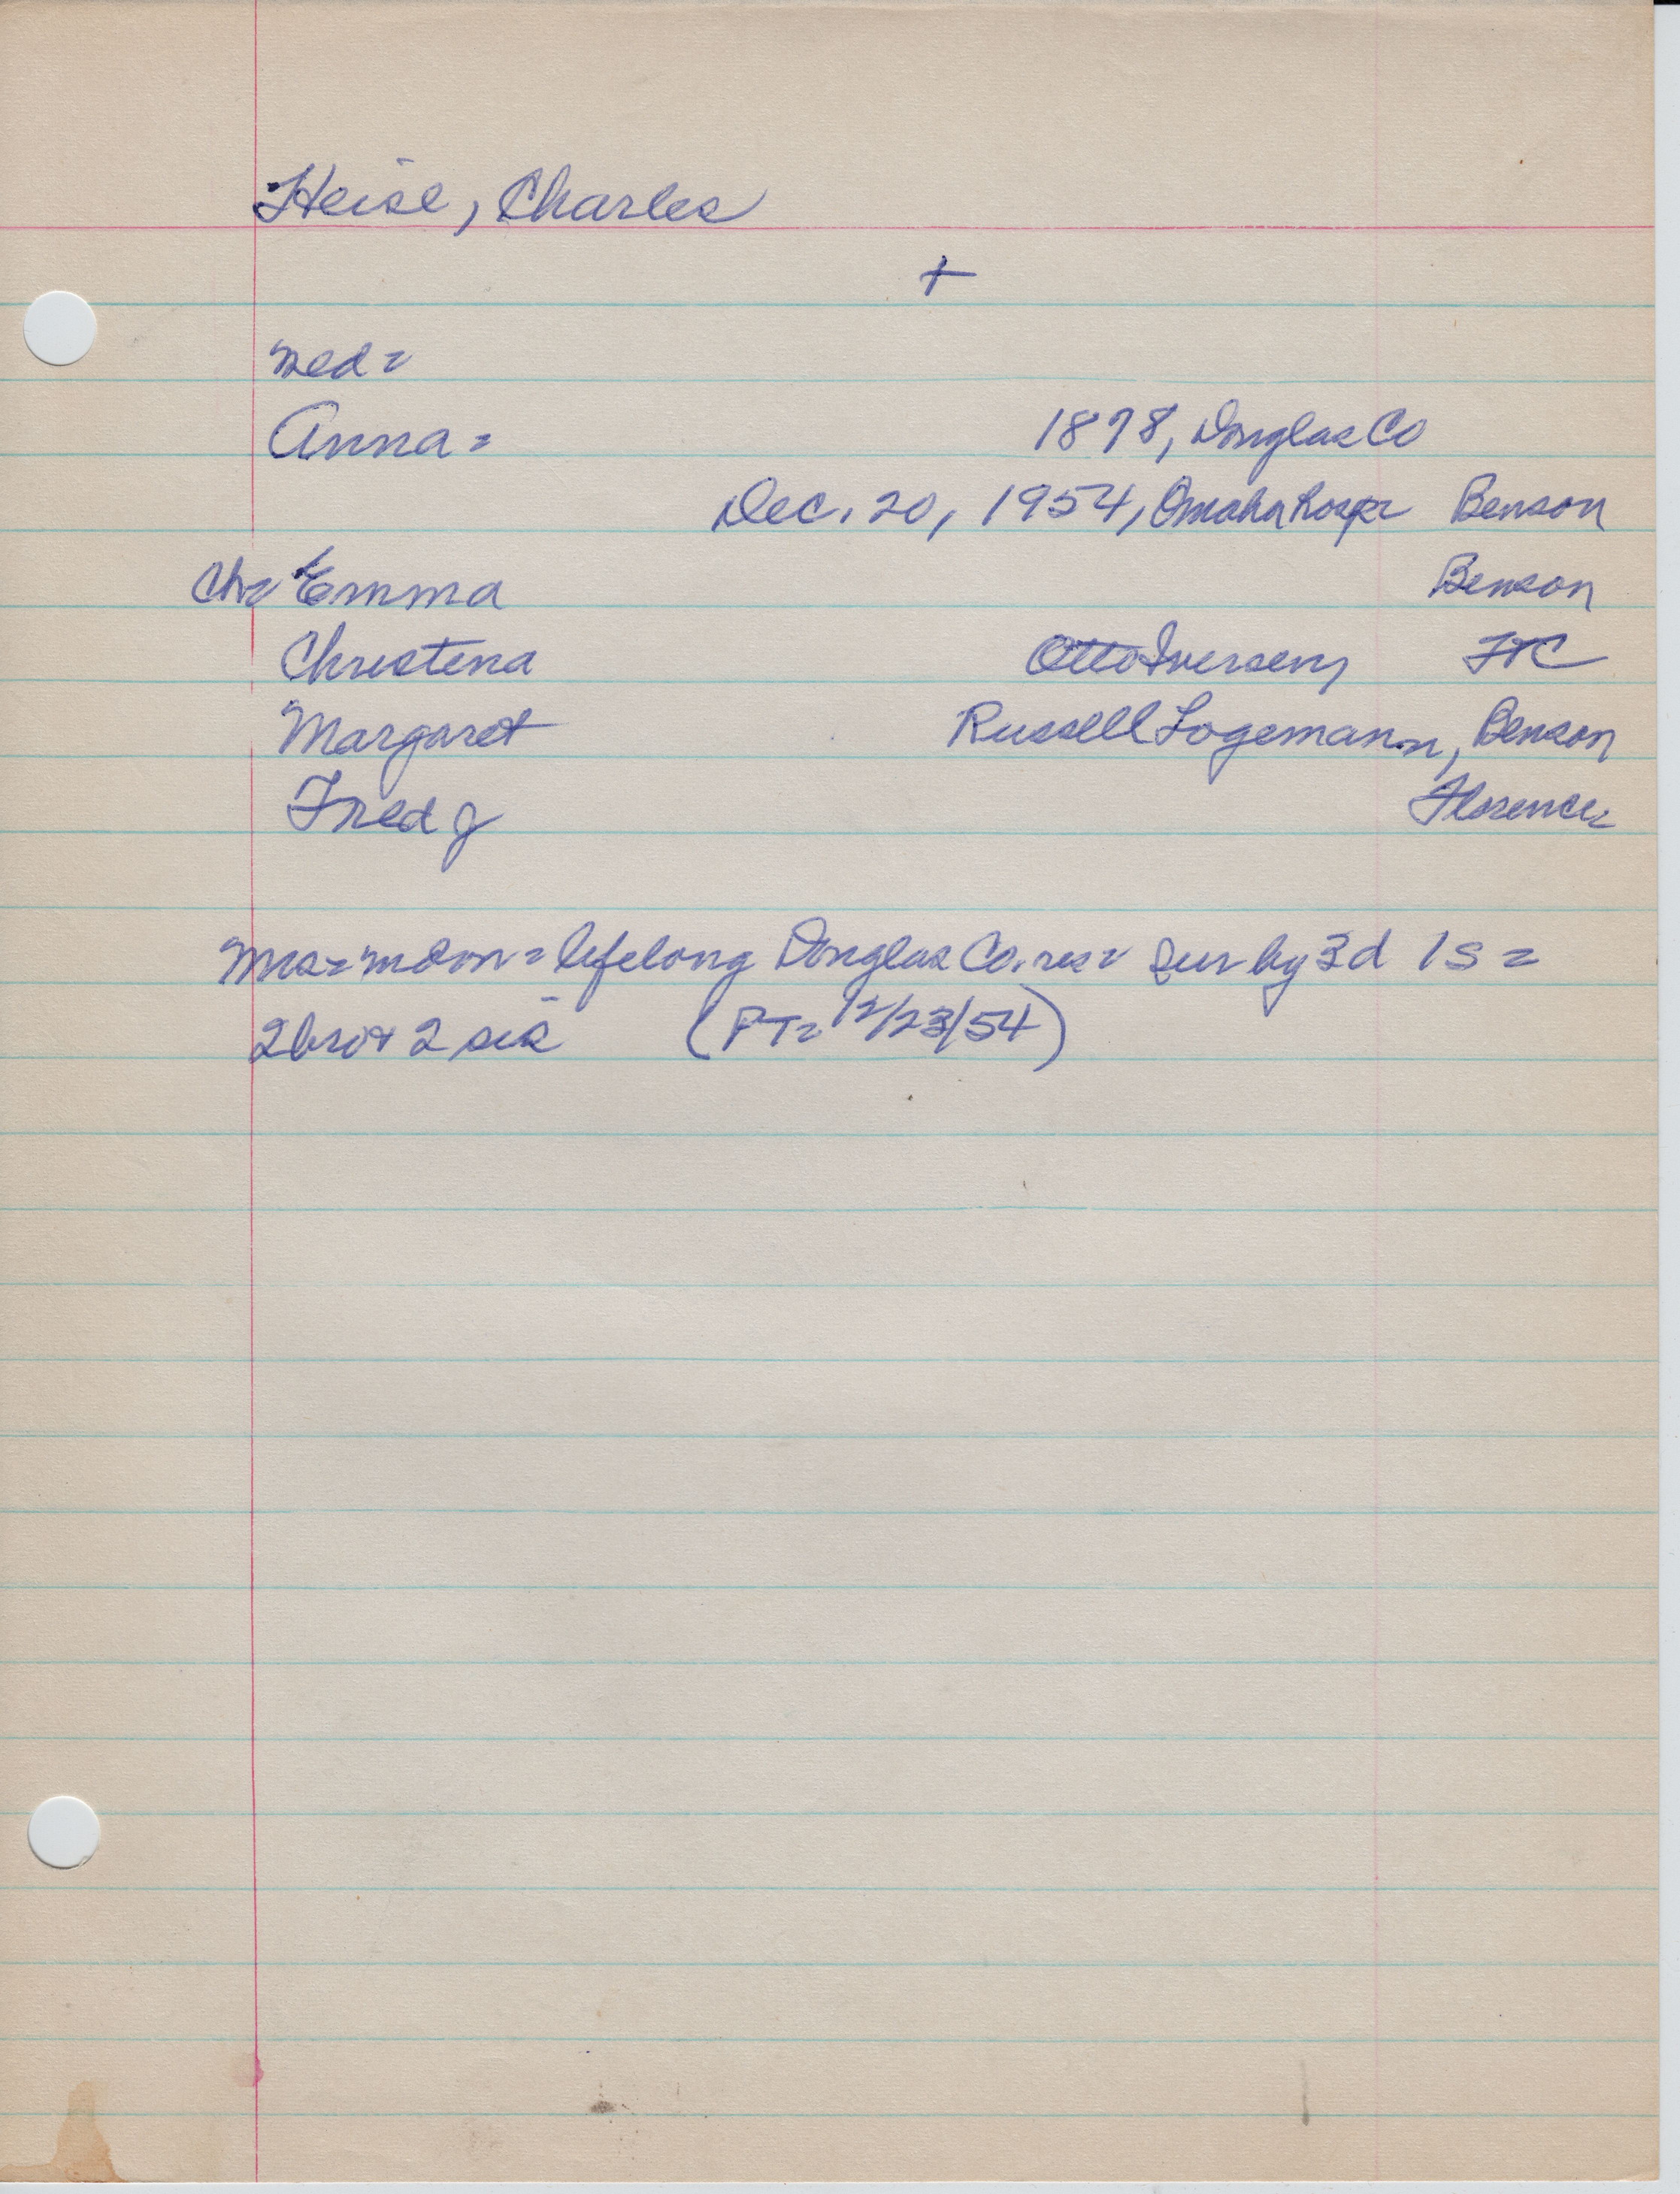 Heise, Charles
+
med=
Anna= 1878, Douglas Co
Dec. 20, 1954, Omaha hosp= Benson
Ch= Emma Benson
Christena Otto Iversen, FTC
Margaret Russell Logemann, Benson
Fred J Florence
Mrs= lifelong Douglas Co. res= sur by 3d 1s=
2 bro & 2 sis (PT= 12/23/54)